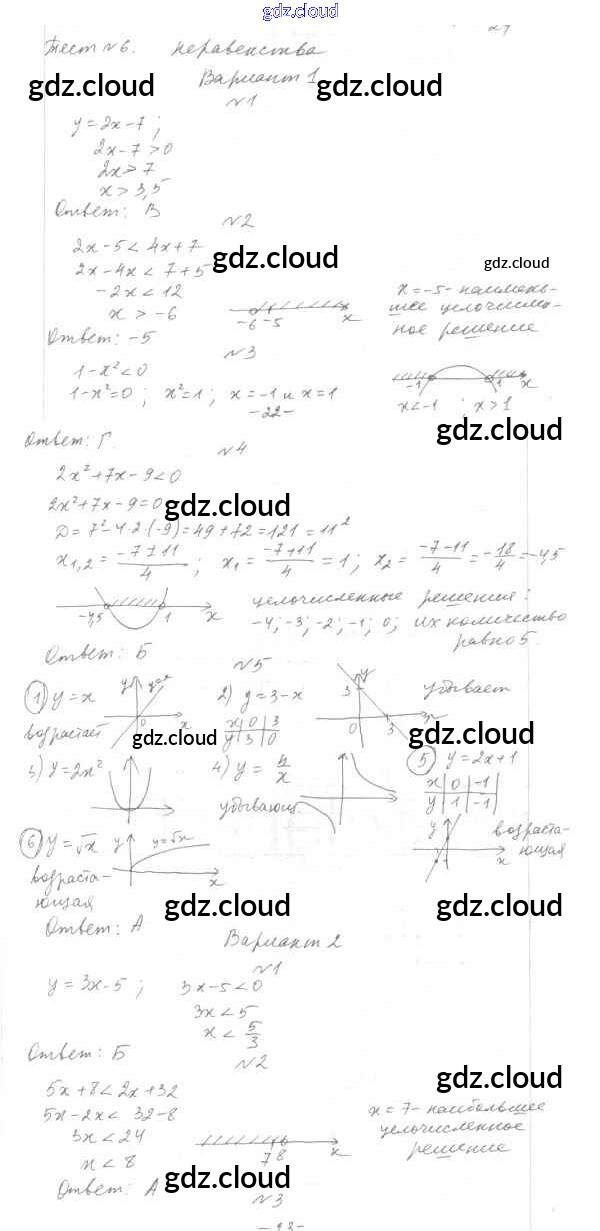 gdz.cloud
Тест №6. неравенства
gdz.cloud gdz.cloud
Вариант 1
№1
y = 2x - 7 ;
2x - 7 > 0
2x > 7
x > 3,5
Ответ: В
№2
2x - 5 < 4x + 7
gdz.cloud gdz.cloud
2x - 4x < 7 + 5
-2x < 12
x > -6
-6 -5 x
x = -5 - наимень-
шее целочислен-
ное решение
Ответ: -5
№3
1 - x² < 0
1 - x² = 0 ; x² = 1 ; x = -1 и x = 1
-1 1 x
x < -1 ; x > 1
-22-
gdz.cloud
Ответ: Г.
№4
2x² + 7x - 9 < 0
2x² + 7x - 9 = 0
gdz.cloud gdz.cloud
D = 7² - 4·2·(-9) = 49 + 72 = 121 = 11²
x₁,₂ = (-7 ± 11)/4 ; x₁ = (-7+11)/4 = 1 ; x₂ = (-7-11)/4 = -18/4 = -4,5
-4,5 1 x
целочисленные решения:
-4; -3; -2; -1; 0; их количество
равно 5.
Ответ: Б
№5
1) y = x y y=x 0 x
возрастает
2) y = 3 - x
x 0 3
y 3 0
3 y 0 3 x
убывает
gdz.cloud gdz.cloud
3) y = 2x²
4) y = 4/x
убывающ.
5) y = 2x + 1
x 0 -1
y 1 -1
y x
возраста-
ющая
6) y = √x y y=√x x
возраста-
ющая
gdz.cloud gdz.cloud
Ответ: А
Вариант 2
№1
y = 3x - 5 ; 3x - 5 < 0
3x < 5
x < 5/3
gdz.cloud
Ответ: Б
№2
gdz.cloud
5x + 8 < 2x + 32
5x - 2x < 32 - 8
3x < 24
x < 8
7 8 x
x = 7 - наибольшее
целочисленное
решение
gdz.cloud gdz.cloud
Ответ: А
№3